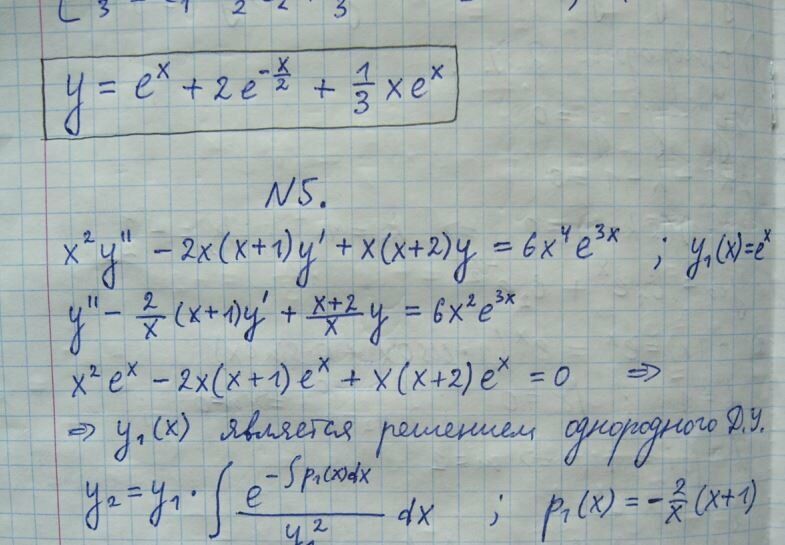 y = e^x + 2e^{-x/2} + 1/3 xe^x
N5.
x²y'' - 2x(x+1)y' + x(x+2)y = 6x⁴e^{3x} ; y₁(x)=e^x
y'' - 2/x (x+1)y' + (x+2)/x y = 6x²e^{3x}
x²e^x - 2x(x+1)e^x + x(x+2)e^x = 0 ⇒
⇒ y₁(x) является решением однородного Д.У.
y₂ = y₁ · ∫ e^{-∫p₁(x)dx}/y₁² dx ; p₁(x) = -2/x (x+1)